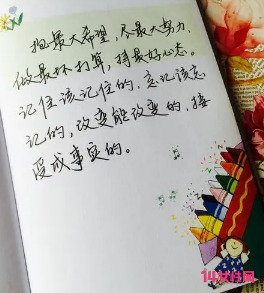 抱最大希望，尽最大努力，
做最坏打算，持最好心态。
记住该记住的，忘记该忘
记的，改变能改变的，接
受成事实的。
14女性网